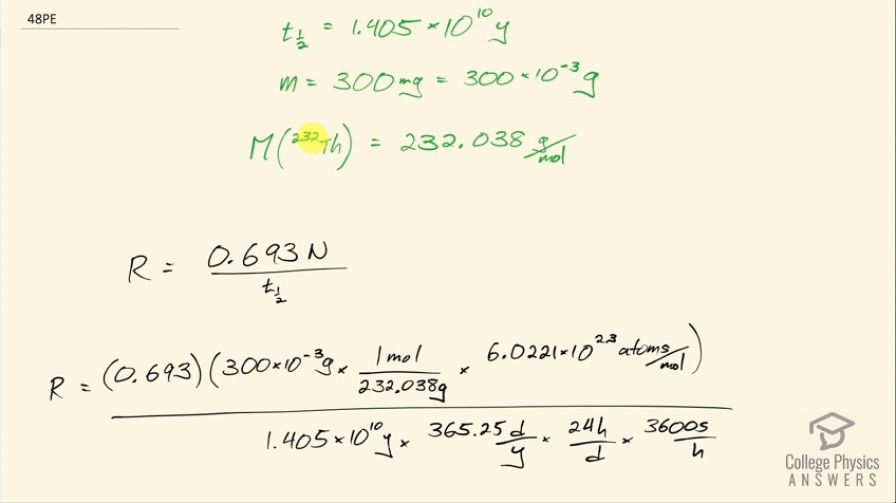 48PE
t½ = 1.405 × 10¹⁰ y
m = 300 mg = 300 × 10⁻³ g
M(²³²Th) = 232.038 g/mol
R = 0.693 N / t½
R = (0.693)(300×10⁻³g × 1 mol / 232.038g × 6.0221×10²³ atoms/mol)
1.405×10¹⁰y × 365.25 d/y × 24h/d × 3600s/h
College Physics
ANSWERS